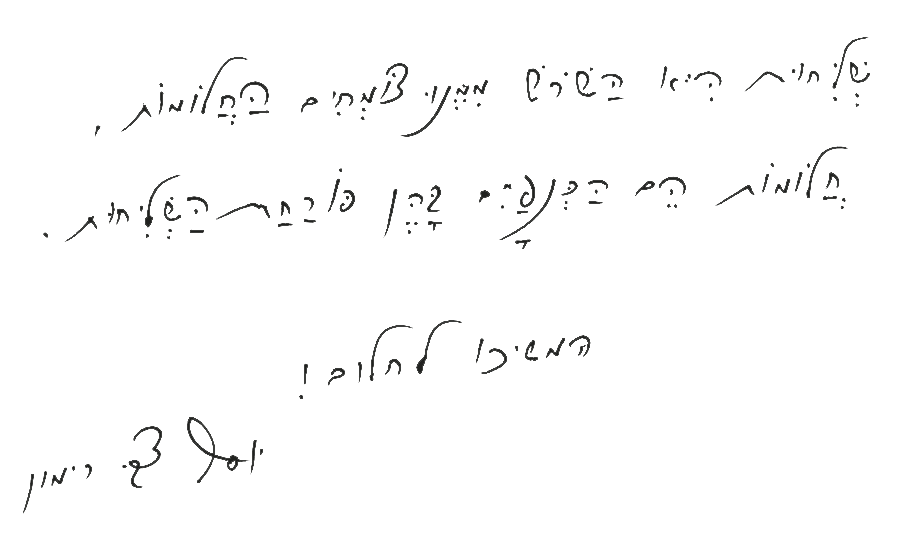 שְׁלִיחוּת הִיא הַשֹּׁרֶשׁ מִמֶּנּוּ צוֹמְחִים הַחֲלוֹמוֹת,
חֲלוֹמוֹת הֵם הַכְּנָפַיִם בָּהֶן פּוֹרַחַת הַשְּׁלִיחוּת.
המשיכו לחלום!
יוסף צבי רימון